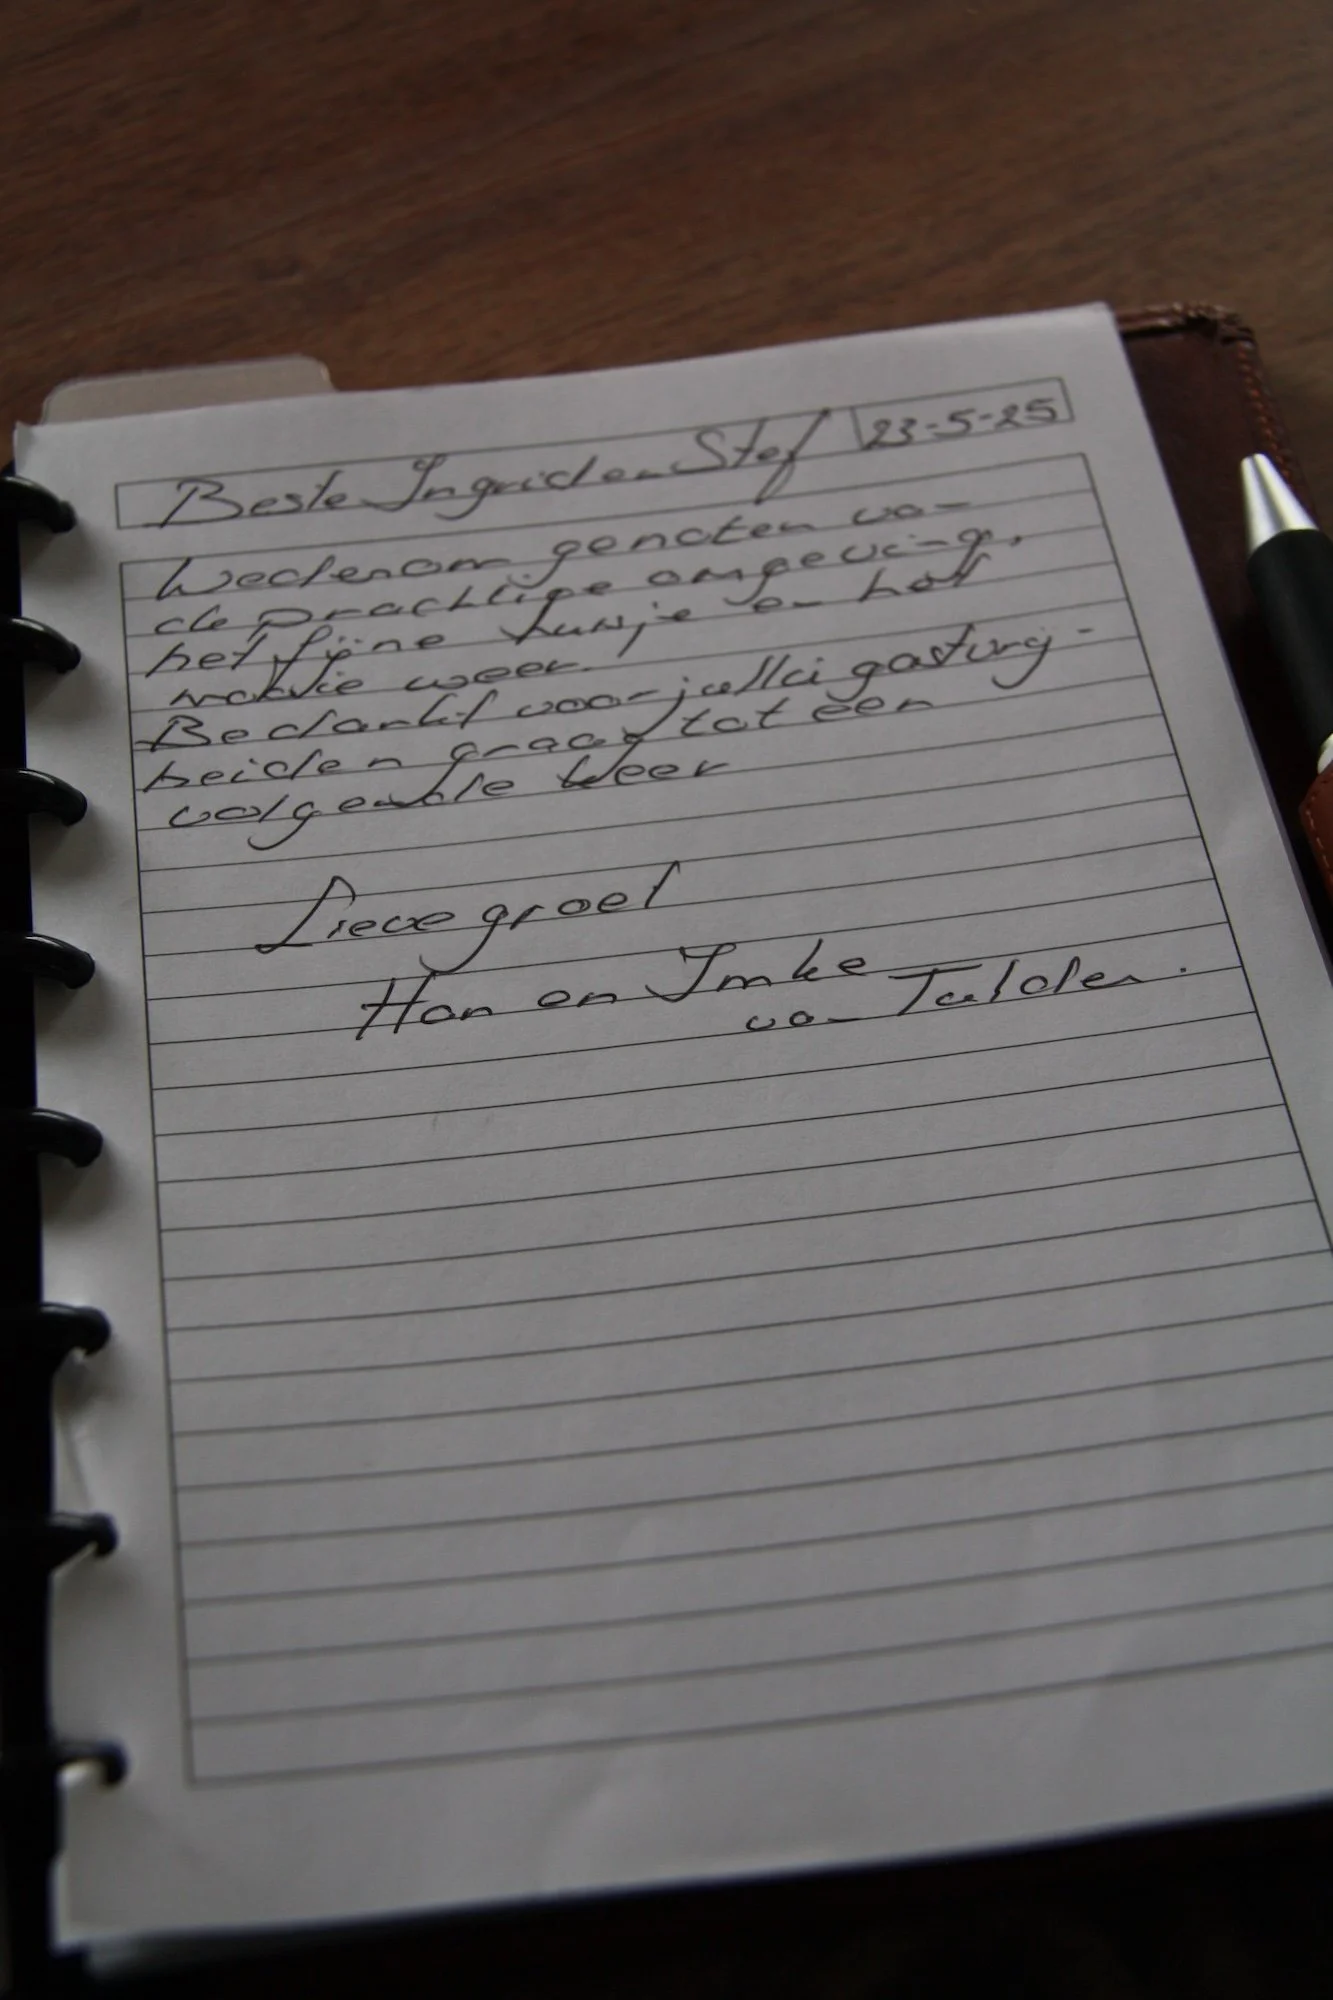 Beste Ingrid en Stef
23-5-25
Wederom genoten van
de prachtige omgeving,
het fijne huisje en het
mooie weer.
Bedankt voor jullie gastvrij-
heiden graag tot een
volgende keer
Lieve groet
Han en Imke
van Tulden.